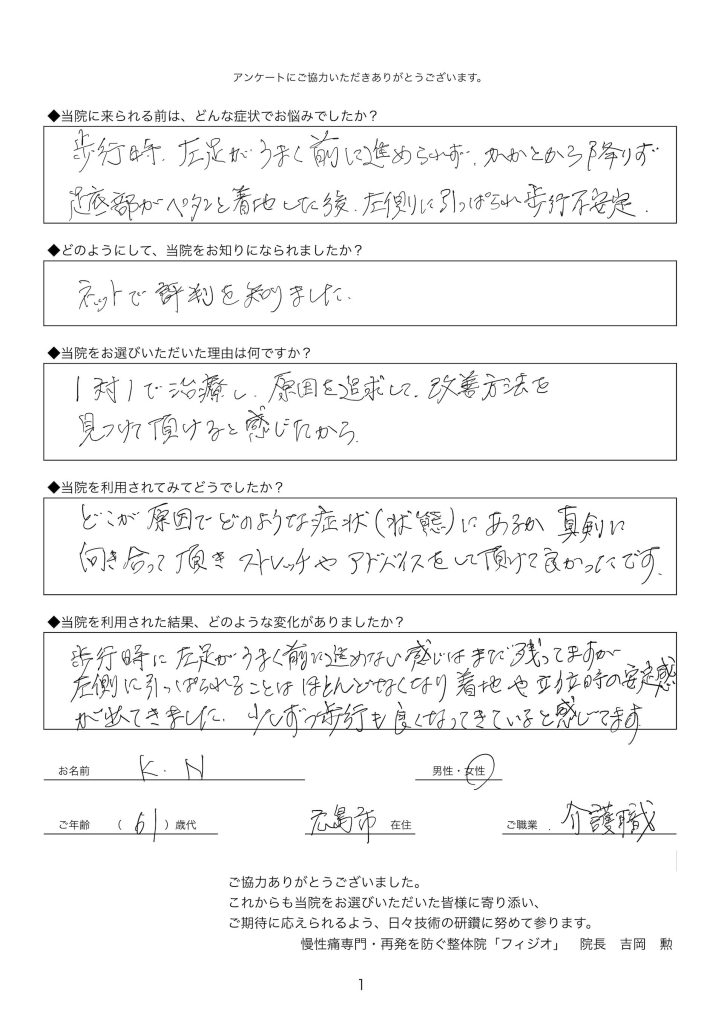 アンケートにご協力いただきありがとうございます。
◆当院に来られる前は、どんな症状でお悩みでしたか？
歩行時、左足がうまく前に進められず、かかとから降りず
足底部がペタンと着地した後、左側に引っぱられ歩行不安定．
◆どのようにして、当院をお知りになられましたか？
ネットで評判を知りました．
◆当院をお選びいただいた理由は何ですか？
1対1で治療し、原因を追求して、改善方法を
見つけて頂けると感じたから．
◆当院を利用されてみてどうでしたか？
どこが原因でどのような症状(状態)にあるか真剣に
向き合って頂きストレッチやアドバイスをして頂けて良かったです．
◆当院を利用された結果、どのような変化がありましたか？
歩行時に左足がうまく前に進めない感じはまだ残ってますが
左側に引っぱられることはほとんどなくなり着地や立位時の安定感
が出てきました．少しずつ歩行も良くなってきていると感じてます
お名前 K．N 男性・女性
ご年齢 （61）歳代 広島市 在住 ご職業 ． 介護職
ご協力ありがとうございました。
これからも当院をお選びいただいた皆様に寄り添い、
ご期待に応えられるよう、日々技術の研鑽に努めて参ります。
慢性痛専門・再発を防ぐ整体院「フィジオ」 院長 吉岡 勲
1